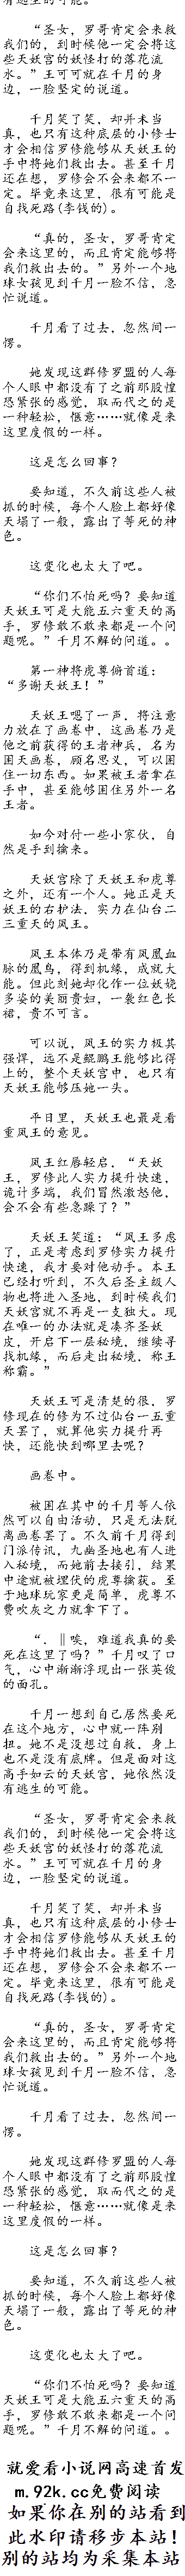 有逃生的可能。
“圣女，罗哥肯定会来救
我们的，到时候他一定会将这
些天妖宫的妖怪打的落花流
水。”王可可就在千月的身
边，一脸坚定的说道。
千月笑了笑，却并未当
真，也只有这种底层的小修士
才会相信罗修能够从天妖王的
手中将她们救出去。甚至千月
还在想，罗修会不会来都不一
定。毕竟来这里，很有可能是
自找死路(李钱的)。
“真的，圣女，罗哥肯定
会来这里的，而且肯定能够将
我们救出去的。”另外一个地
球女孩见到千月一脸不信，急
忙说道。
千月看了过去，忽然间一
愣。
她发现这群修罗盟的人每
个人眼中都没有了之前那股惶
恐紧张的感觉，取而代之的是
一种轻松，惬意……就像是来
这里度假的一样。
这是怎么回事？
要知道，不久前这些人被
抓的时候，每个人脸上都好像
天塌了一般，露出了等死的神
色。
这变化也太大了吧。
“你们不怕死吗？要知道
天妖王可是大能五六重天的高
手，罗修敢不敢来都是一个问
题呢。”千月不解的问道。。
第一神将虎尊俯首道：
“多谢天妖王！”
天妖王嗯了一声，将注意
力放在了画卷中，这画卷乃是
他之前获得的王者神兵，名为
困天画卷，顾名思义，可以困
住一切东西。如果被王者拿在
手中，甚至能够困住另外一名
王者。
如今对付一些小家伙，自
然是手到擒来。
天妖宫除了天妖王和虎尊
之外，还有一个人。她正是天
妖王的右护法，实力在仙台二
三重天的凤王。
凤王本体乃是带有凤凰血
脉的凰鸟，得到机缘，成就大
能。但此刻她却化作一位妖娆
多姿的美丽贵妇，一袭红色长
裙，贵不可言。
可以说，凤王的实力极其
强悍，远不是鲲鹏王能够比得
上的，整个天妖宫中，也只有
天妖王能够压她一头。
平日里，天妖王也最是看
重凤王的意见。
凤王红唇轻启，“天妖
王，罗修此人实力提升快速，
诡计多端，我们冒然激怒他，
会不会有些急躁了？”
天妖王笑道：“凤王多虑
了，正是考虑到罗修实力提升
快速，我才要对他动手。本王
已经打听到，不久后圣主级人
物也将进入圣地，到时候我们
天妖宫就不再是一支独大。现
在唯一的办法就是凑齐圣妖
皮，开启下一层秘境，继续寻
找机缘，而后走出秘境，称王
称霸。”
天妖王可是清楚的很，罗
修现在的修为不过仙台一五重
天罢了，就算他实力提升再
快，还能快到哪里去呢？
画卷中。
被困在其中的千月等人依
然可以自由活动，只是无法脱
离画卷罢了。不久前千月得到
门派传讯，九幽圣地也有人进
入秘境，而她前去接引，结果
中途就被埋伏的虎尊擒获。至
于地球玩家更是简单，虎尊不
费吹灰之力就拿下了。
“．‖唉，难道我真的要
死在这里了吗？”千月叹了口
气，心中渐渐浮现出一张英俊
的面孔。
千月一想到自己居然要死
在这个地方，心中就一阵别
扭。她不是没想过自救，身上
也不是没有底牌。但是面对这
高手如云的天妖宫，她依然没
有逃生的可能。
“圣女，罗哥肯定会来救
我们的，到时候他一定会将这
些天妖宫的妖怪打的落花流
水。”王可可就在千月的身
边，一脸坚定的说道。
千月笑了笑，却并未当
真，也只有这种底层的小修士
才会相信罗修能够从天妖王的
手中将她们救出去。甚至千月
还在想，罗修会不会来都不一
定。毕竟来这里，很有可能是
自找死路(李钱的)。
“真的，圣女，罗哥肯定
会来这里的，而且肯定能够将
我们救出去的。”另外一个地
球女孩见到千月一脸不信，急
忙说道。
千月看了过去，忽然间一
愣。
她发现这群修罗盟的人每
个人眼中都没有了之前那股惶
恐紧张的感觉，取而代之的是
一种轻松，惬意……就像是来
这里度假的一样。
这是怎么回事？
要知道，不久前这些人被
抓的时候，每个人脸上都好像
天塌了一般，露出了等死的神
色。
这变化也太大了吧。
“你们不怕死吗？要知道
天妖王可是大能五六重天的高
手，罗修敢不敢来都是一个问
题呢。”千月不解的问道。。
就爱看小说网高速首发
m.92k.cc免费阅读
如果你在别的站看到
此水印请移步本站！
别的站均为采集本站